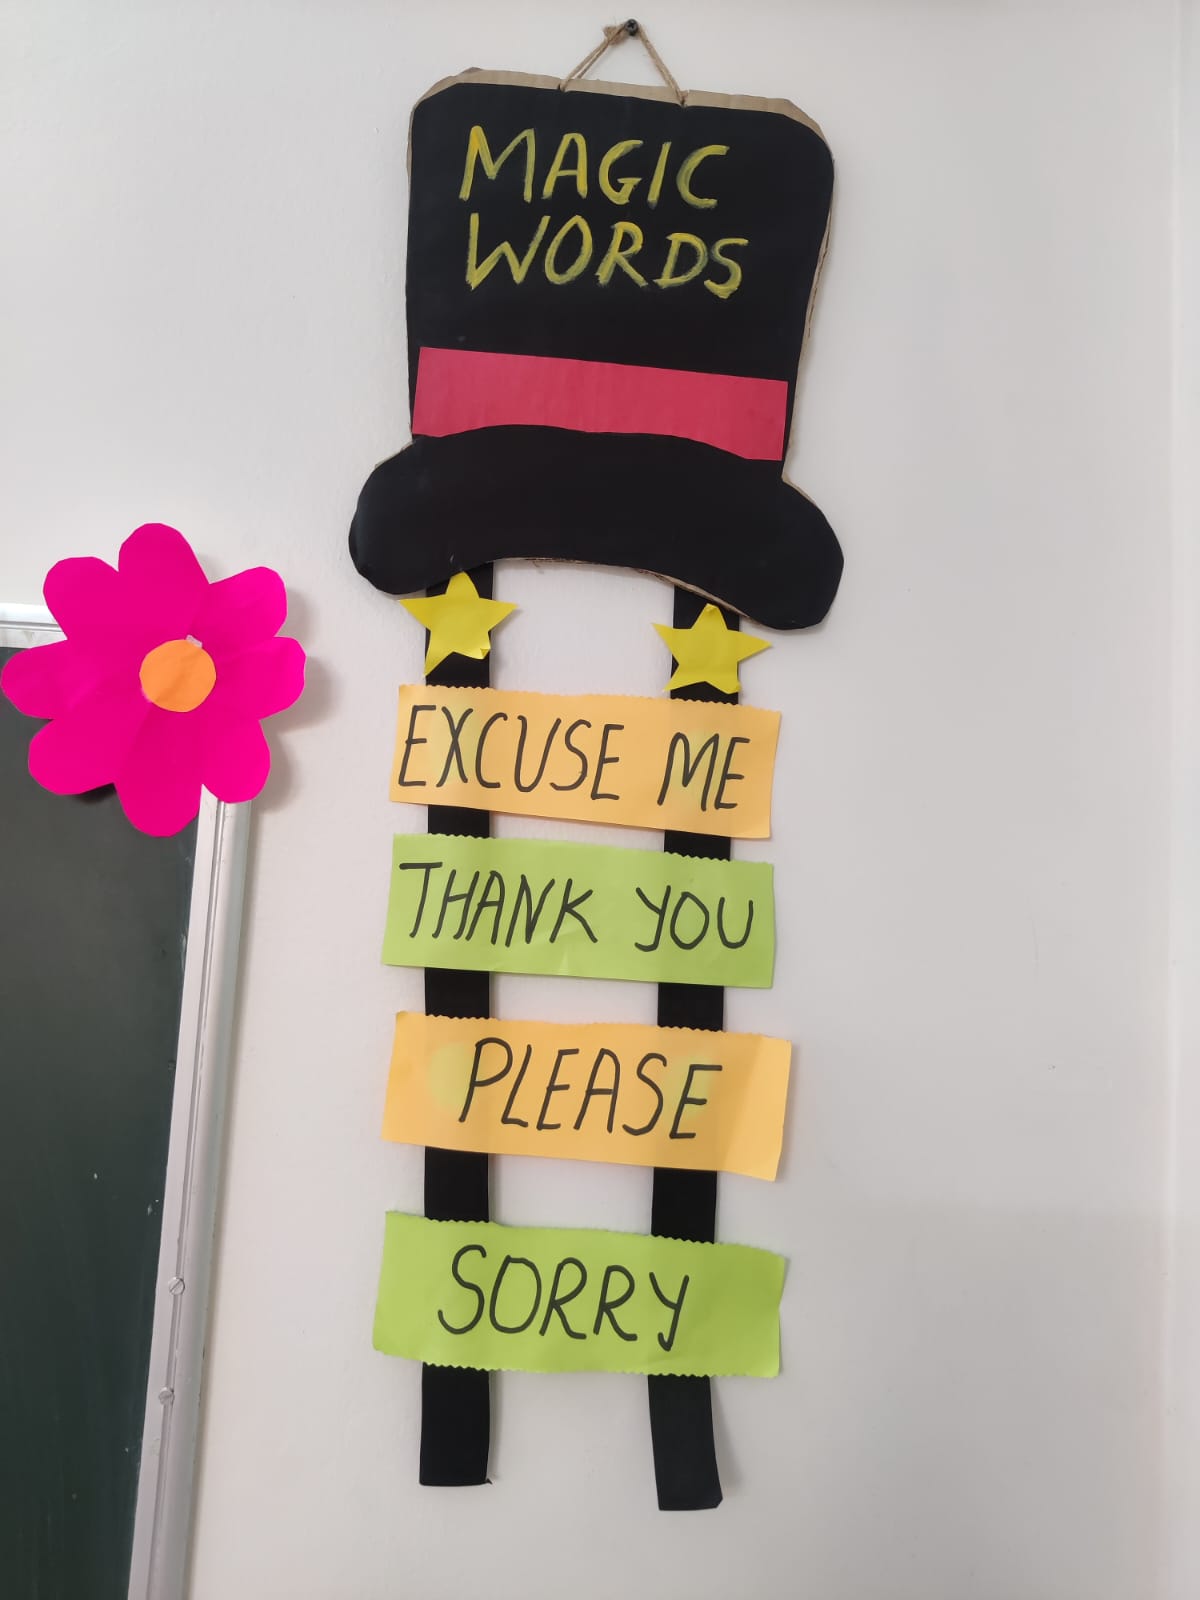 MAGIC
WORDS
EXCUSE ME
THANK YOU
PLEASE
SORRY